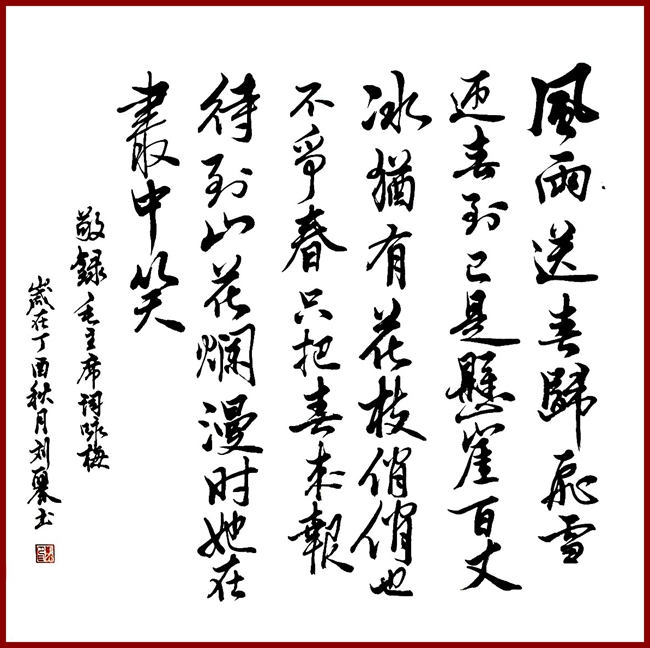 風雨送春歸飛雪
迎春到已是懸崖百丈
冰猶有花枝俏俏也
不爭春只把春来報
待到山花爛漫时她在
叢中笑
敬録毛主席詞咏梅
歲在丁酉秋月刘书